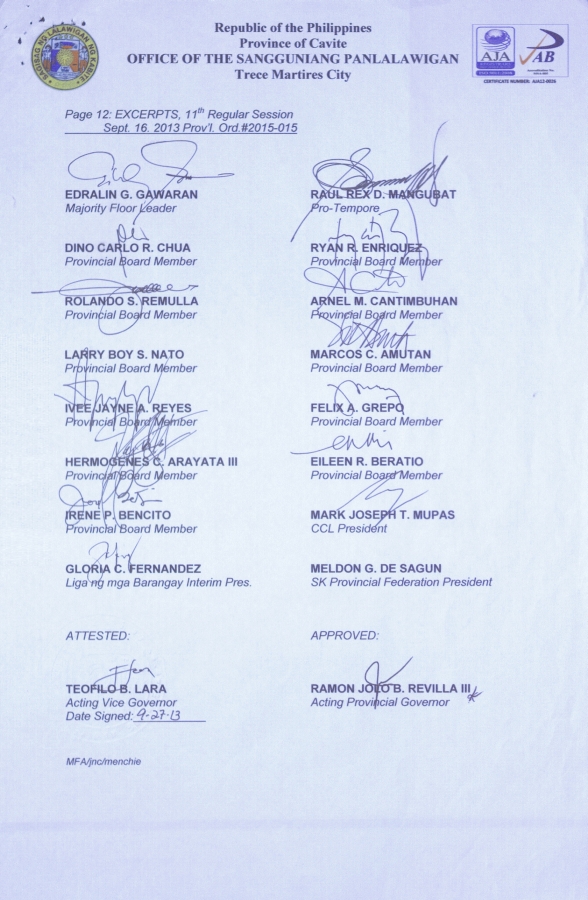 Republic of the Philippines
Province of Cavite
OFFICE OF THE SANGGUNIANG PANLALAWIGAN
Trece Martires City
AJA
AB
CERTIFICATE NUMBER: AJA13-0026
Page 12: EXCERPTS, 11th Regular Session
Sept. 16. 2013 Prov'l. Ord.#2015-015
EDRALIN G. GAWARAN
Majority Floor Leader
RAUL REX D. MANGUBAT
Pro-Tempore
DINO CARLO R. CHUA
Provincial Board Member
RYAN R. ENRIQUEZ
Provincial Board Member
ROLANDO S. REMULLA
Provincial Board Member
ARNEL M. CANTIMBUHAN
Provincial Board Member
LARRY BOY S. NATO
Provincial Board Member
MARCOS C. AMUTAN
Provincial Board Member
IVEE JAYNE A. REYES
Provincial Board Member
FELIX A. GREPO
Provincial Board Member
HERMOGENES C. ARAYATA III
Provincial Board Member
EILEEN R. BERATIO
Provincial Board Member
IRENE P. BENCITO
Provincial Board Member
MARK JOSEPH T. MUPAS
CCL President
GLORIA C. FERNANDEZ
Liga ng mga Barangay Interim Pres.
MELDON G. DE SAGUN
SK Provincial Federation President
ATTESTED:
APPROVED:
TEOFILO B. LARA
Acting Vice Governor
Date Signed: 9-27-13
RAMON JOLO B. REVILLA III
Acting Provincial Governor
MFA/jnc/menchie